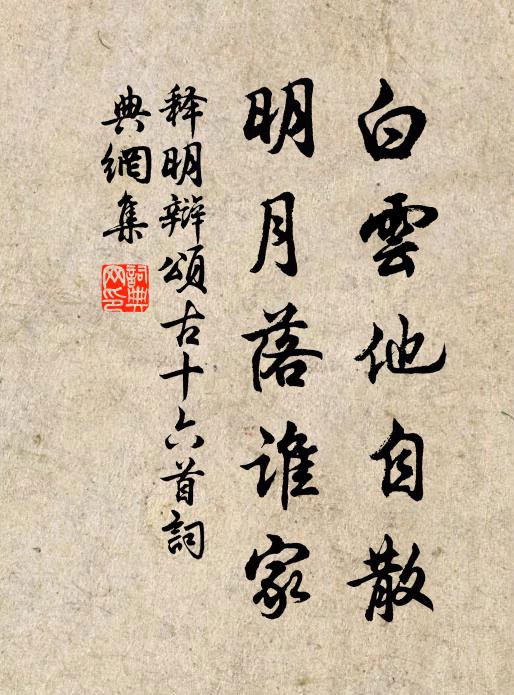 白雲他自散
明月落誰家
释明辯頌古十六首詞
典網集
詞典網印